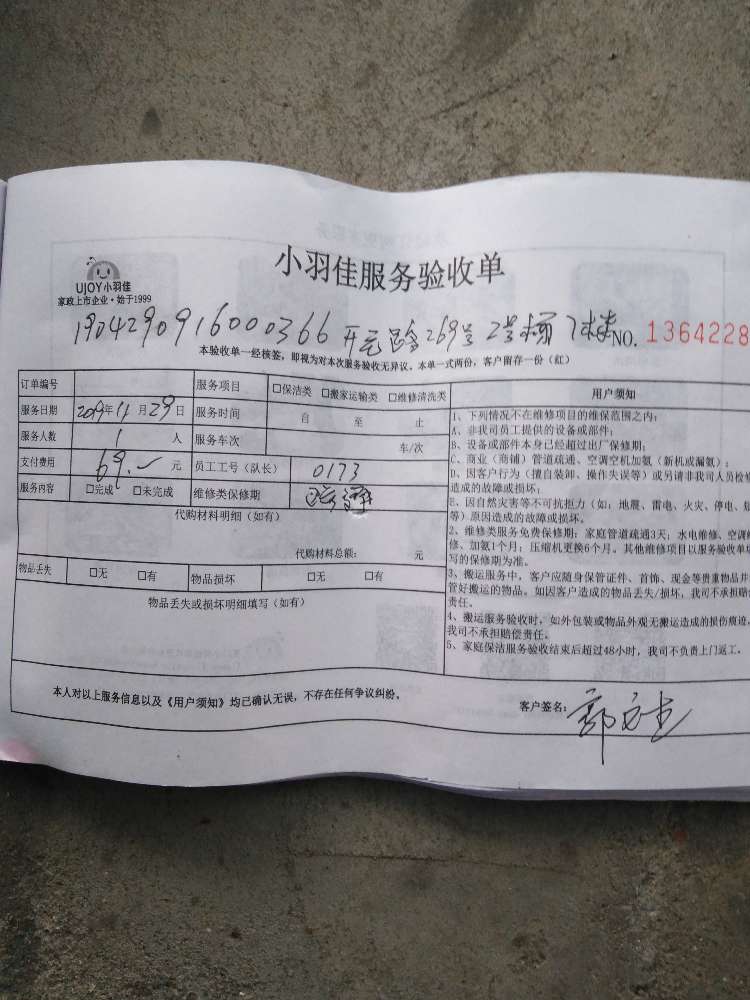 小羽佳服务验收单
UJOY小羽佳
家政上市企业·始于1999
190429091600 0366 开元路269号2号楼7楼 NO. 1364228
本验收单一经核签，即视为对本次服务验收无异议。本单一式两份，客户留存一份（红）
订单编号 服务项目 □保洁类 □搬家运输类 □维修清洗类
服务日期 2019年11月29日 服务时间 自 至 止
服务人数 1 人 服务车次 车/次
支付费用 69.- 元 员工工号（队长） 0173
服务内容 □完成 □未完成 维修类保修期
代购材料明细（如有）
代购材料总额： 元
物品丢失 □无 □有 物品损坏 □无 □有
物品丢失或损坏明细填写（如有）
用户须知
1、下列情况不在维修项目的维保范围之内：
A、非我司员工提供的设备或部件；
B、设备或部件本身已经超过出厂保修期；
C、商业（商铺）管道疏通、空调空机加氨（新机或漏氨）；
D、因客户行为（擅自装卸、操作失误等）或另请非我司人员检修
造成的故障或损坏；
E、因自然灾害等不可抗拒力（如：地震、雷电、火灾、停电、
等）原因造成的故障或损坏。
2、维修类服务免费保修期：家庭管道疏通3天；水电维修、空调
修、加氨1个月；压缩机更换6个月。其他维修项目以服务验收单
写的保修期为准。
3、搬运服务中，客户应随身保管证件、首饰、现金等贵重物品并
管好搬运的物品。如因客户造成的物品丢失/损坏，我司不承担赔
责任。
4、搬运服务验收时，如外包装或物品外观无搬运造成的损伤痕迹，
我司不承担赔偿责任。
5、家庭保洁服务验收结束后超过48小时，我司不负责上门返工。
本人对以上服务信息以及《用户须知》均已确认无误，不存在任何争议纠纷。
客户签名：